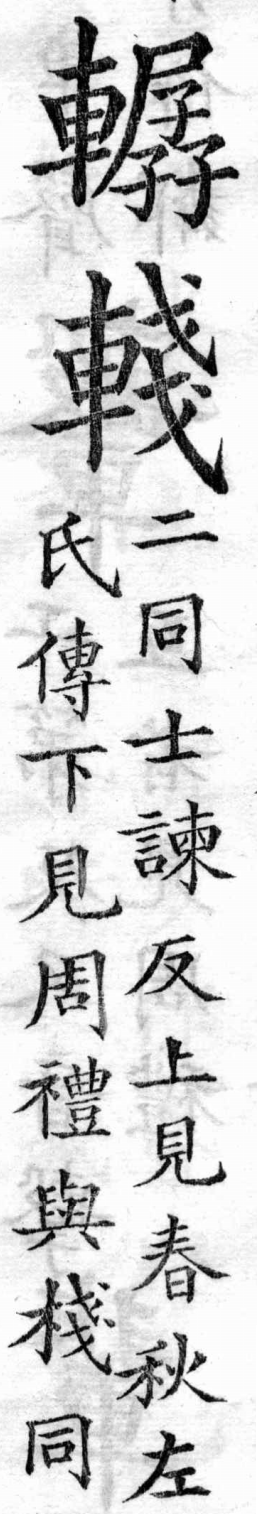 轏輚
二同士諫反上見春秋左
氏傳下見周禮與棧同